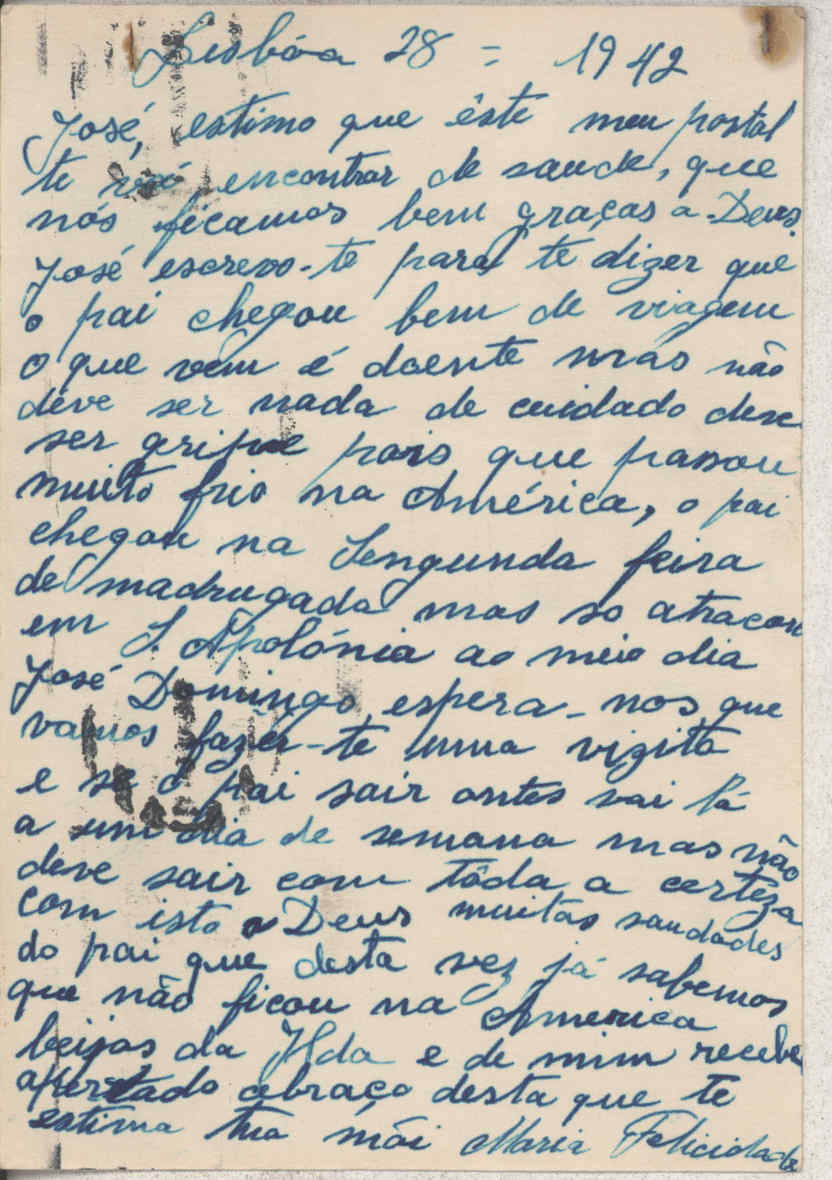 Lisbôa 28 = 1942
José, estimo que êste meu postal
te vá encontrar de saude, que
nós ficamos bem graças a Deus.
José escrevo-te para te dizer que
o pai chegou bem de viagem
o que vem é doente mas não
deve ser nada de cuidado deve
ser gripe pois que passou
muito frio na América, o pai
chegou na Sengunda feira
de madrugada mas so atracou
em S. Apolónia ao meio dia
José Domingo espera-nos que
vamos fazer-te uma vizita
e se o pai sair antes vai lá
a um dia de semana mas não
deve sair com tôda a certeza
com isto a Deus muitas saudades
do pai que desta vez já sabemos
que não ficou na America
beijos da Ilda e de mim recebe
apertado abraço desta que te
estima tua mãi Maria Felicidade